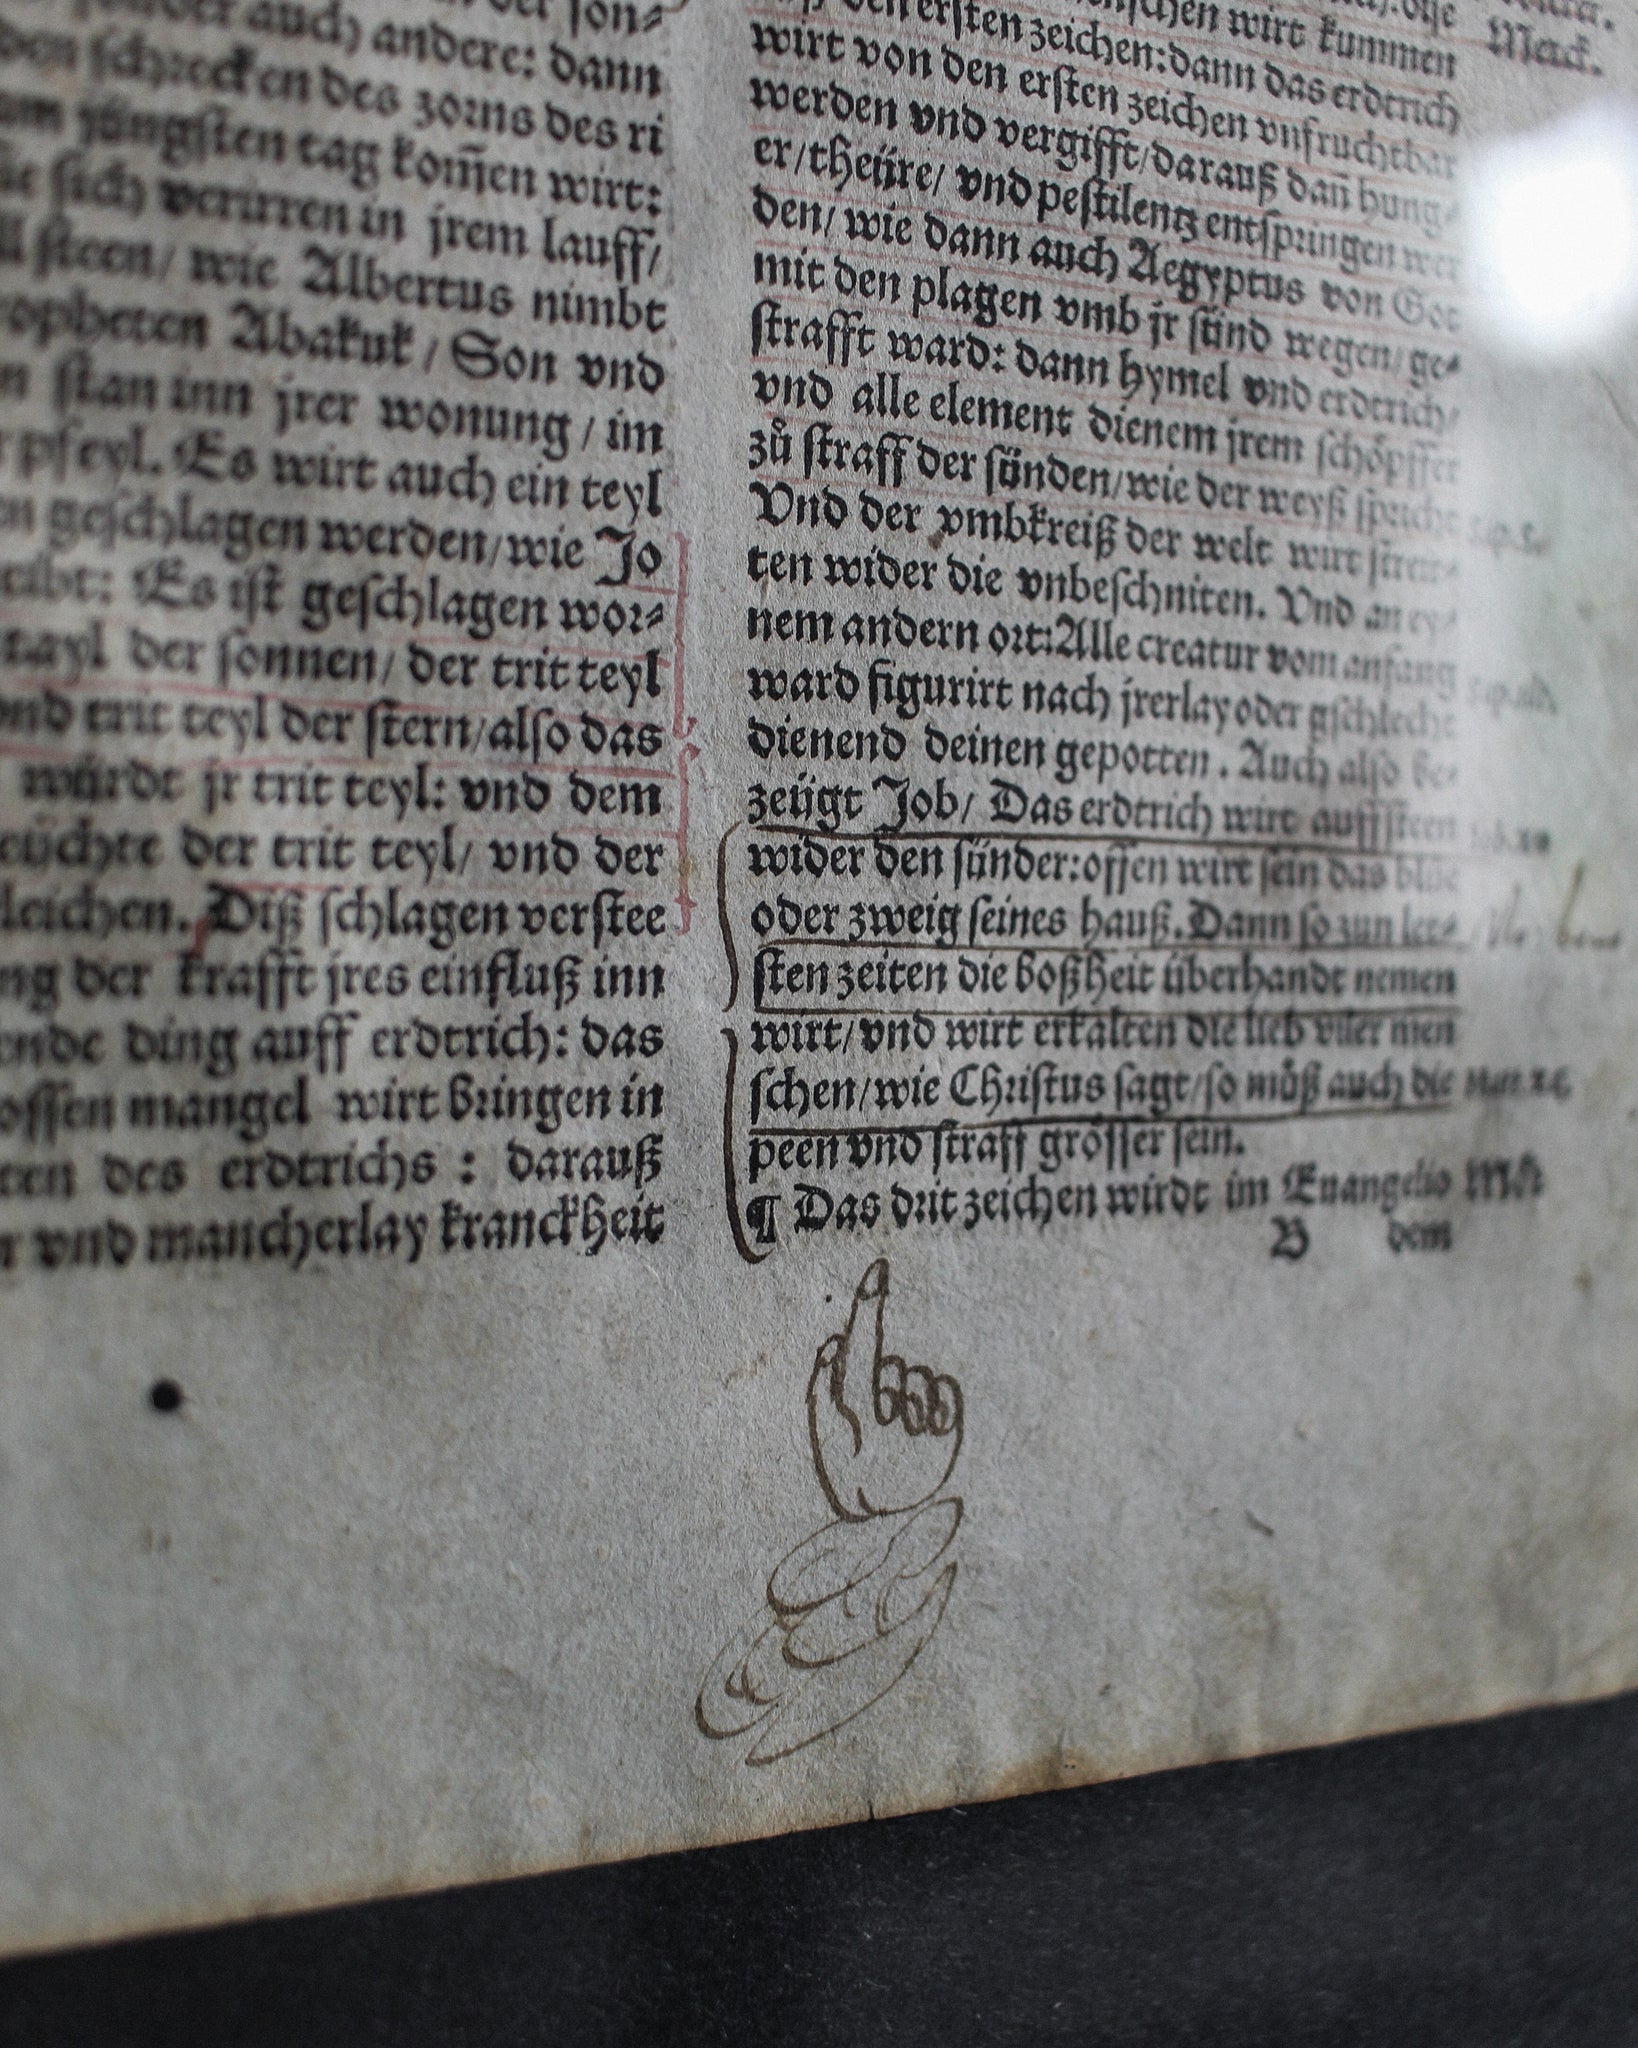 der son⸗
auch andere: dann
schrecken des zorns des ri
jüngsten tag kom̃en wirt:
sich verirren in jrem lauff/
steen/ wie Albertus nimbt
Abakuk / Son vnd
stan inn jrer wonung / im
pfeyl. Es wirt auch ein teyl
geschlagen werden/wie Jo
Es ist geschlagen wor⸗
tayl der sonnen/ der trit teyl
vnd trit teyl der stern/also das
würdt jr trit teyl: vnd dem
der trit teyl/ vnd der
Diß schlagen verstee
der krafft jres einfluß inn
ding auff erdtrich: das
mangel wirt bringen in
des erdtrichs : darauß
vnd mancherlay kranckheit
wirt kummen
den ersten zeichen:dann das erdtrich
wirt von den ersten zeichen vnfruchtbar
werden vnd vergifft/darauß dañ hung⸗
er/theüre/ vnd pestilentz entspringen wer
den/ wie dann auch Aegyptus von Got
mit den plagen vmb jr sünd wegen/ge⸗
strafft ward: dann hymel vnd erdtrich/
vnd alle element dienem jrem schöpffer
zů straff der sünden/wie der weyß spricht
Vnd der vmbkreiß der welt wirt strey⸗
ten wider die vnbeschniten. Vnd an ey⸗
nem andern ort:Alle creatur vom anfang
ward figurirt nach jrerlay oder gschlecht
dienend deinen gepotten . Auch also be⸗
zeügt Job/ Das erdtrich wirt auffsteen
wider den sünder:offen wirt sein das blüe
oder zweig seines hauß.Dann so zun let⸗
sten zeiten die boßheit überhandt nemen
wirt/vnd wirt erkalten die lieb viler men
schen/wie Christus sagt/so můß auch die
peen vnd straff grösser sein.
¶ Das drit zeichen wirdt im Euangelio
B dem
Merck.